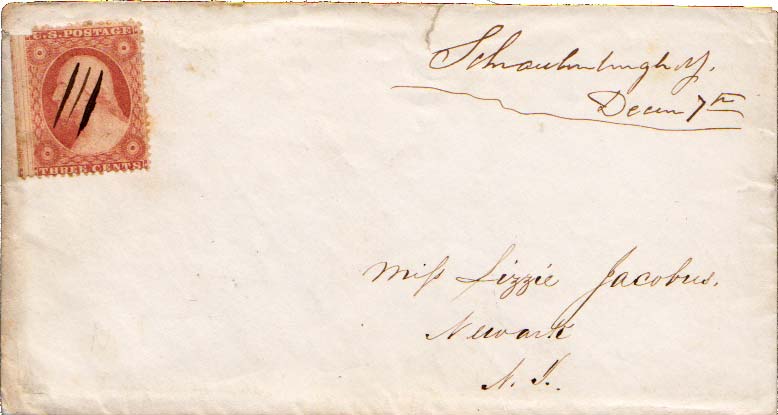 U.S. POSTAGE
THREE CENTS
Schraalenburgh N.J.
Decem 7th
Miss Lizzie Jacobus.
Newark
N. J.